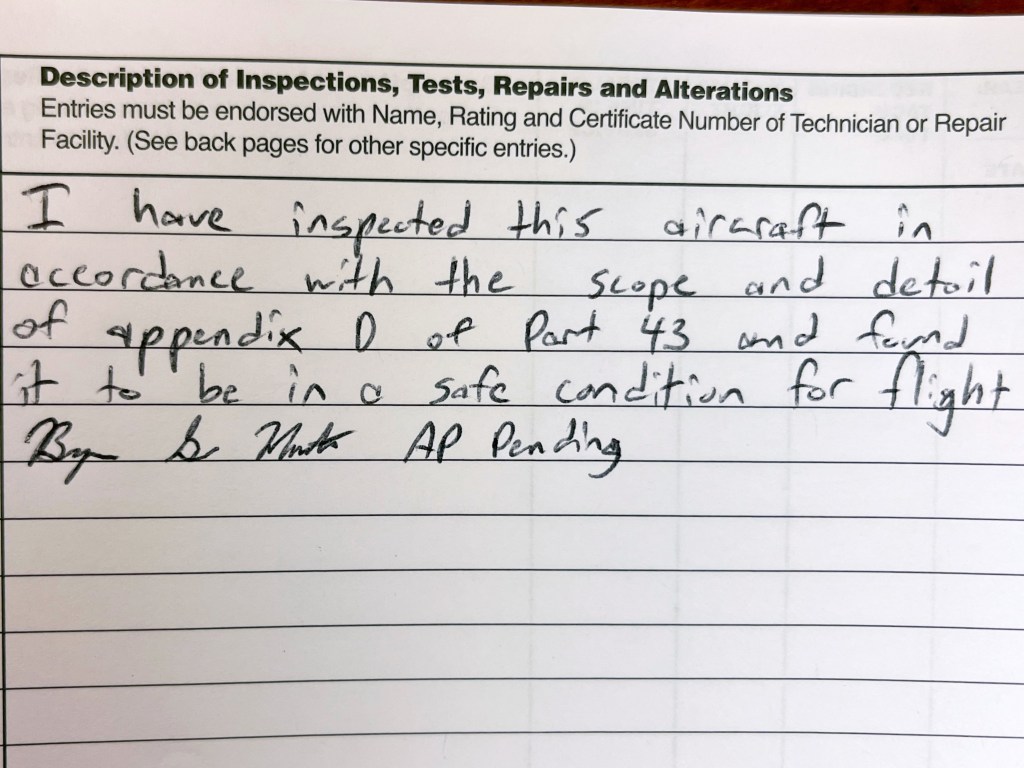 Description of Inspections, Tests, Repairs and Alterations
Entries must be endorsed with Name, Rating and Certificate Number of Technician or Repair
Facility. (See back pages for other specific entries.)
I have inspected this aircraft in
accordance with the scope and detail
of appendix D of Part 43 and found
it to be in a safe condition for flight
AP Pending